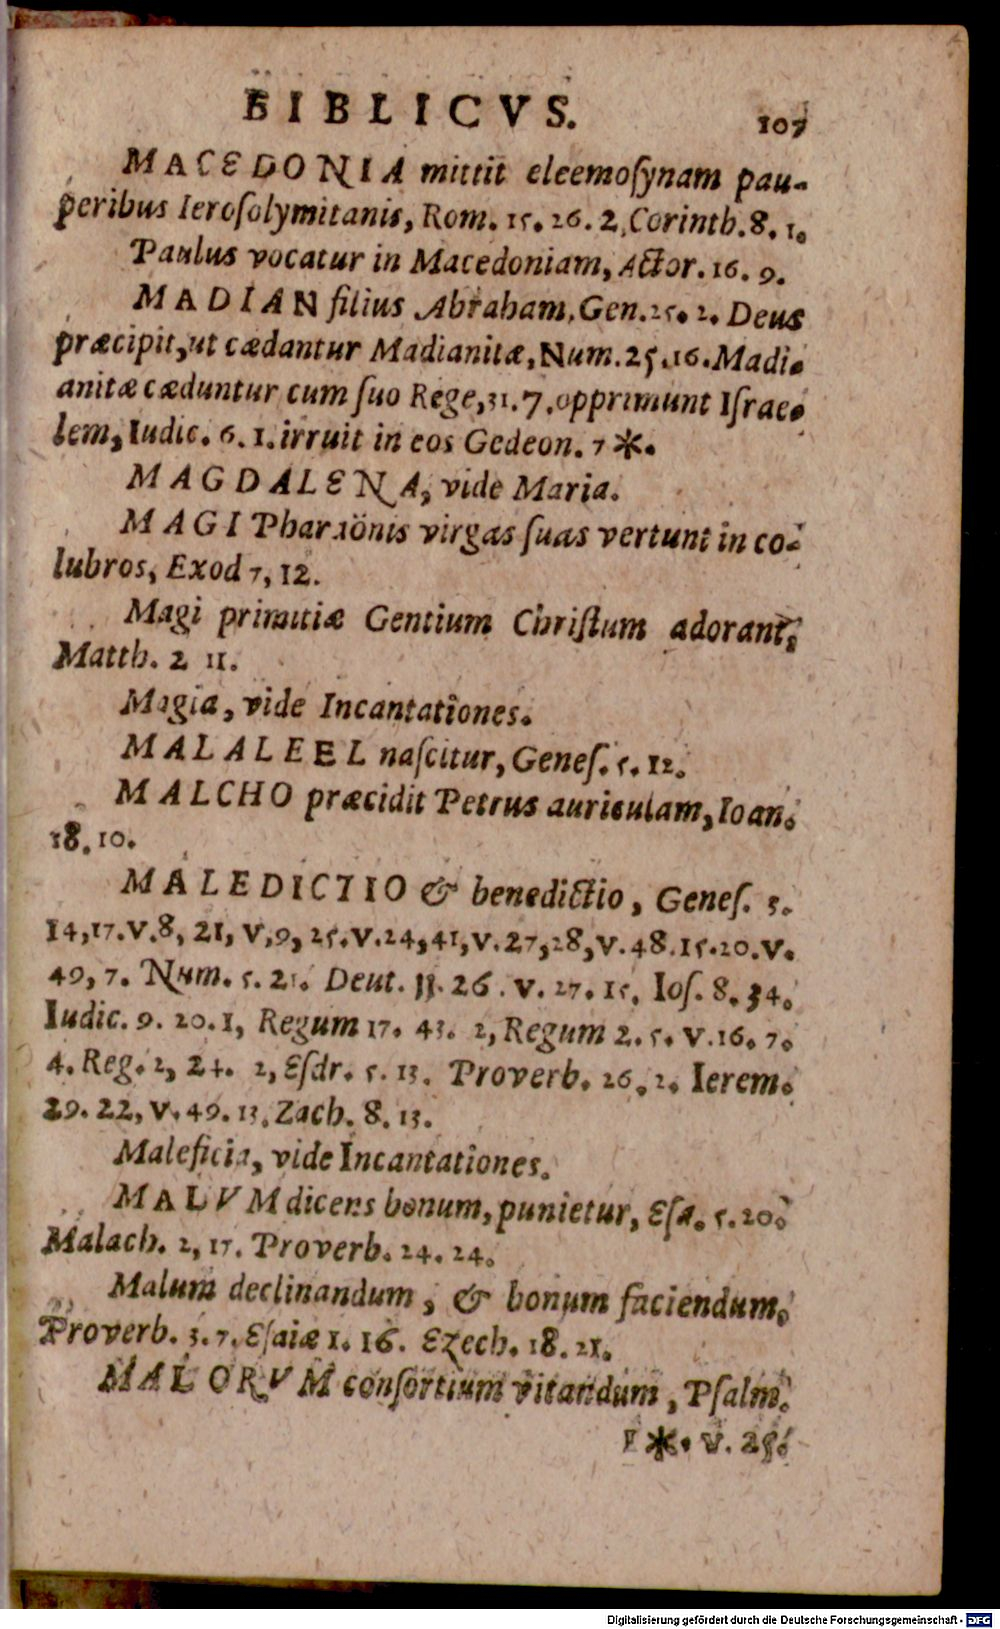 BIBLICVS. 107
MACEDONIA mittit eleemoſynam pau-
peribus Ieroſolymitanis, Rom. 15. 26. 2, Corinth. 8. 1.
Paulus vocatur in Macedoniam, Actor. 16. 9.
MADIAN filius Abraham, Gen. 25. 2. Deus
præcipit, ut cædantur Madianitæ, Num. 25. 16. Madi-
anitæ cæduntur cum ſuo Rege, 31. 7. opprimunt Iſrae-
lem, Iudic. 6. 1. irruit in eos Gedeon. 7 *.
MAGDALENA, vide Maria.
MAGI Pharaönis virgas ſuas vertunt in co-
lubros, Exod 7, 12.
Magi primitiæ Gentium Chriſtum adorant,
Matth. 2 11.
Magia, vide Incantationes.
MALALEEL naſcitur, Geneſ. 5. 12.
MALCHO præcidit Petrus auriculam, Ioan.
18. 10.
MALEDICTIO & benedictio, Geneſ. 3.
14, 17. V. 8, 21, V, 9, 25. V. 24, 41, V. 27, 28, V. 48. 15. 20. V.
49, 7. Num. 5. 21. Deut. 11. 26. V. 27. 15. Ioſ. 8. 34.
Iudic. 9. 20. 1, Regum 17. 43. 2, Regum 2. 5. V. 16. 7.
4. Reg. 2, 24. 2, Eſdr. 5. 13. Proverb. 26. 2. Ierem.
29. 22, V. 49. 13, Zach. 8. 13.
Maleficia, vide Incantationes.
MALVM dicens bonum, punietur, Eſa. 5. 20.
Malach. 2, 17. Proverb. 24. 24.
Malum declinandum, & bonum faciendum,
Proverb. 3. 7. Eſaiæ 1. 16. Ezech. 18. 21.
MALORVM conſortium vitandum, Pſalm.
1 *. V. 25.
Digitalisierung gefördert durch die Deutsche Forschungsgemeinschaft - DFG